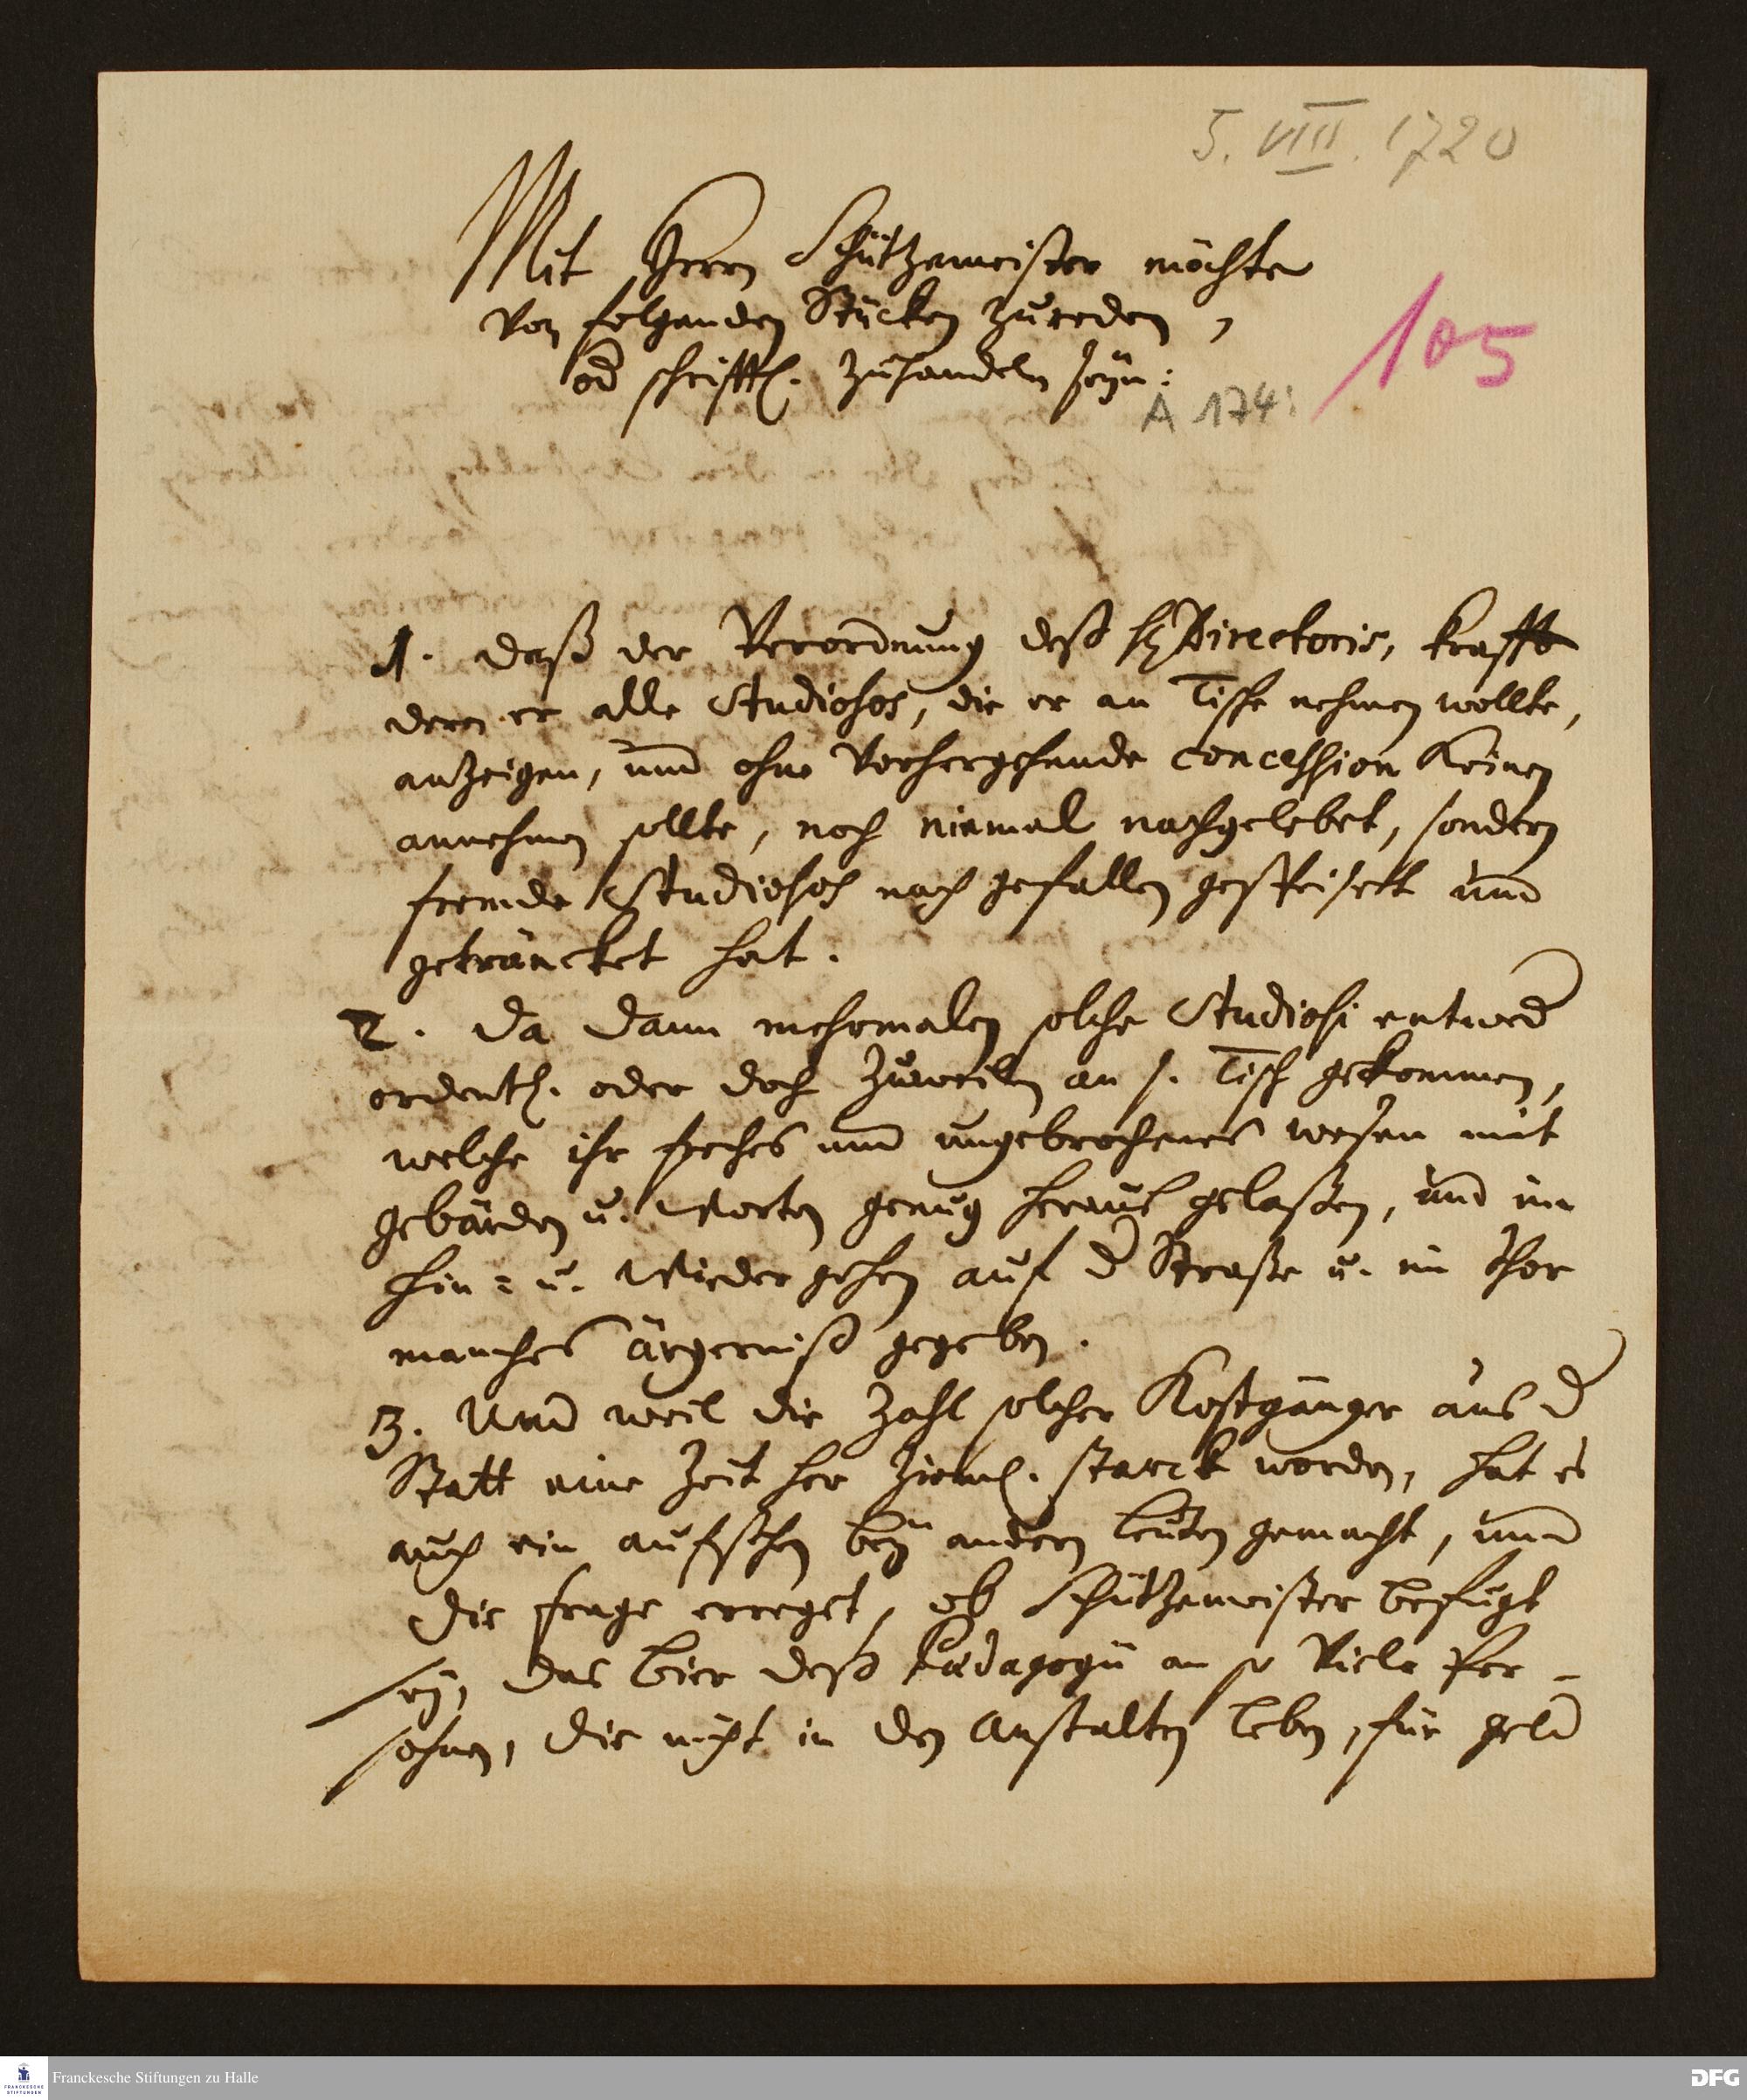 5. VIII. 1720
Mit Herrn Schützemeister möchte
von folgenden Stücken zu reden,
od schrifftl. zu handeln seyn:
105
A 174:
1. daß der Verordnung deß H Directoris, krafft
deren er alle Studiosos, die er an Tisch nehmen wollte,
anzeigen, und ohne vorhergehende concession keinen
annehmen sollte, noch niemal nachgelebet, sondern
fremde Studiosos nach gefallen gespeisett und
geträncket hat.
2. Da dann mehrmalen solche Studiosi entwed
ordentl. oder doch zuweilen an s. Tisch gekommen,
welche ihr freches und ungebrochenes wesen mit
gebärden u. Worten genug herauß gelaßen, und im
hin- u. Wieder gehen auf d Straße u. im Thor
manches ärgerniß gegeben.
3. Und weil die Zahl solcher Kostgänger aus d
Statt eine Zeit her zieml. starck worden, hat es
auch ein aufsehen bey andern leuten gemacht, und
die frage erreget, ob Schützemeister befugt
sey, das bier deß Pædagogii an so viele Per-
sohnen, die nicht in den Anstalten leben, für geld
Franckesche Stiftungen zu Halle
DFG